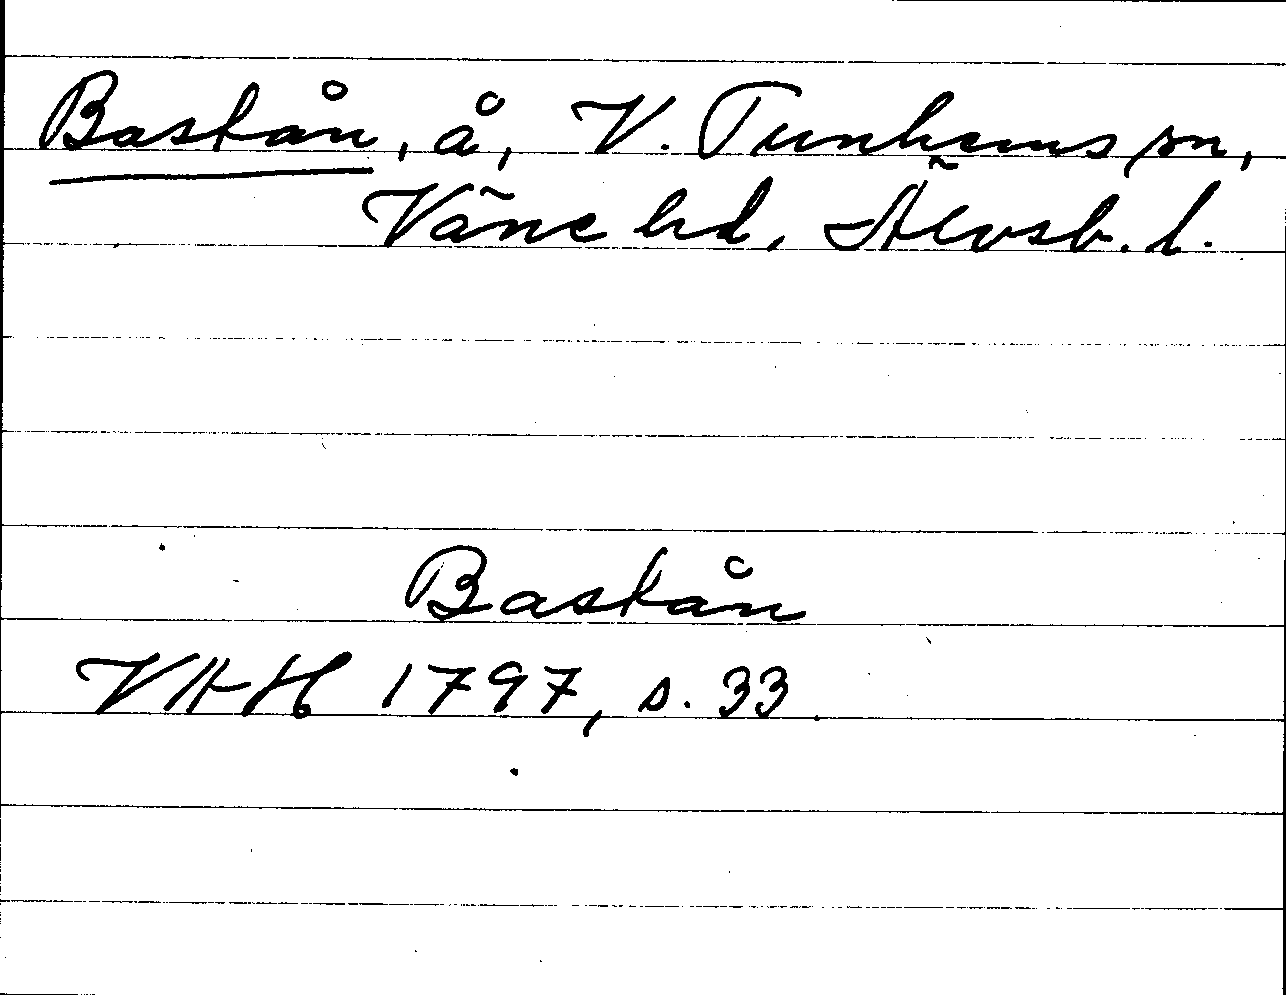 Bastån, å, V. Tunhems sn,
Väne hd, Älvsb. l.
Bastån
VHH 1797, s. 33.